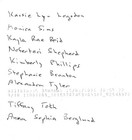 Kastie Lyn Logsdon
Monica Sims
Kayla Rae Reid
Nefertari Shepherd
Kimberly Phillips
Stephanie Brandon
Alexandria Tyler
Tiffany Toth
Anna Sophia Berglund